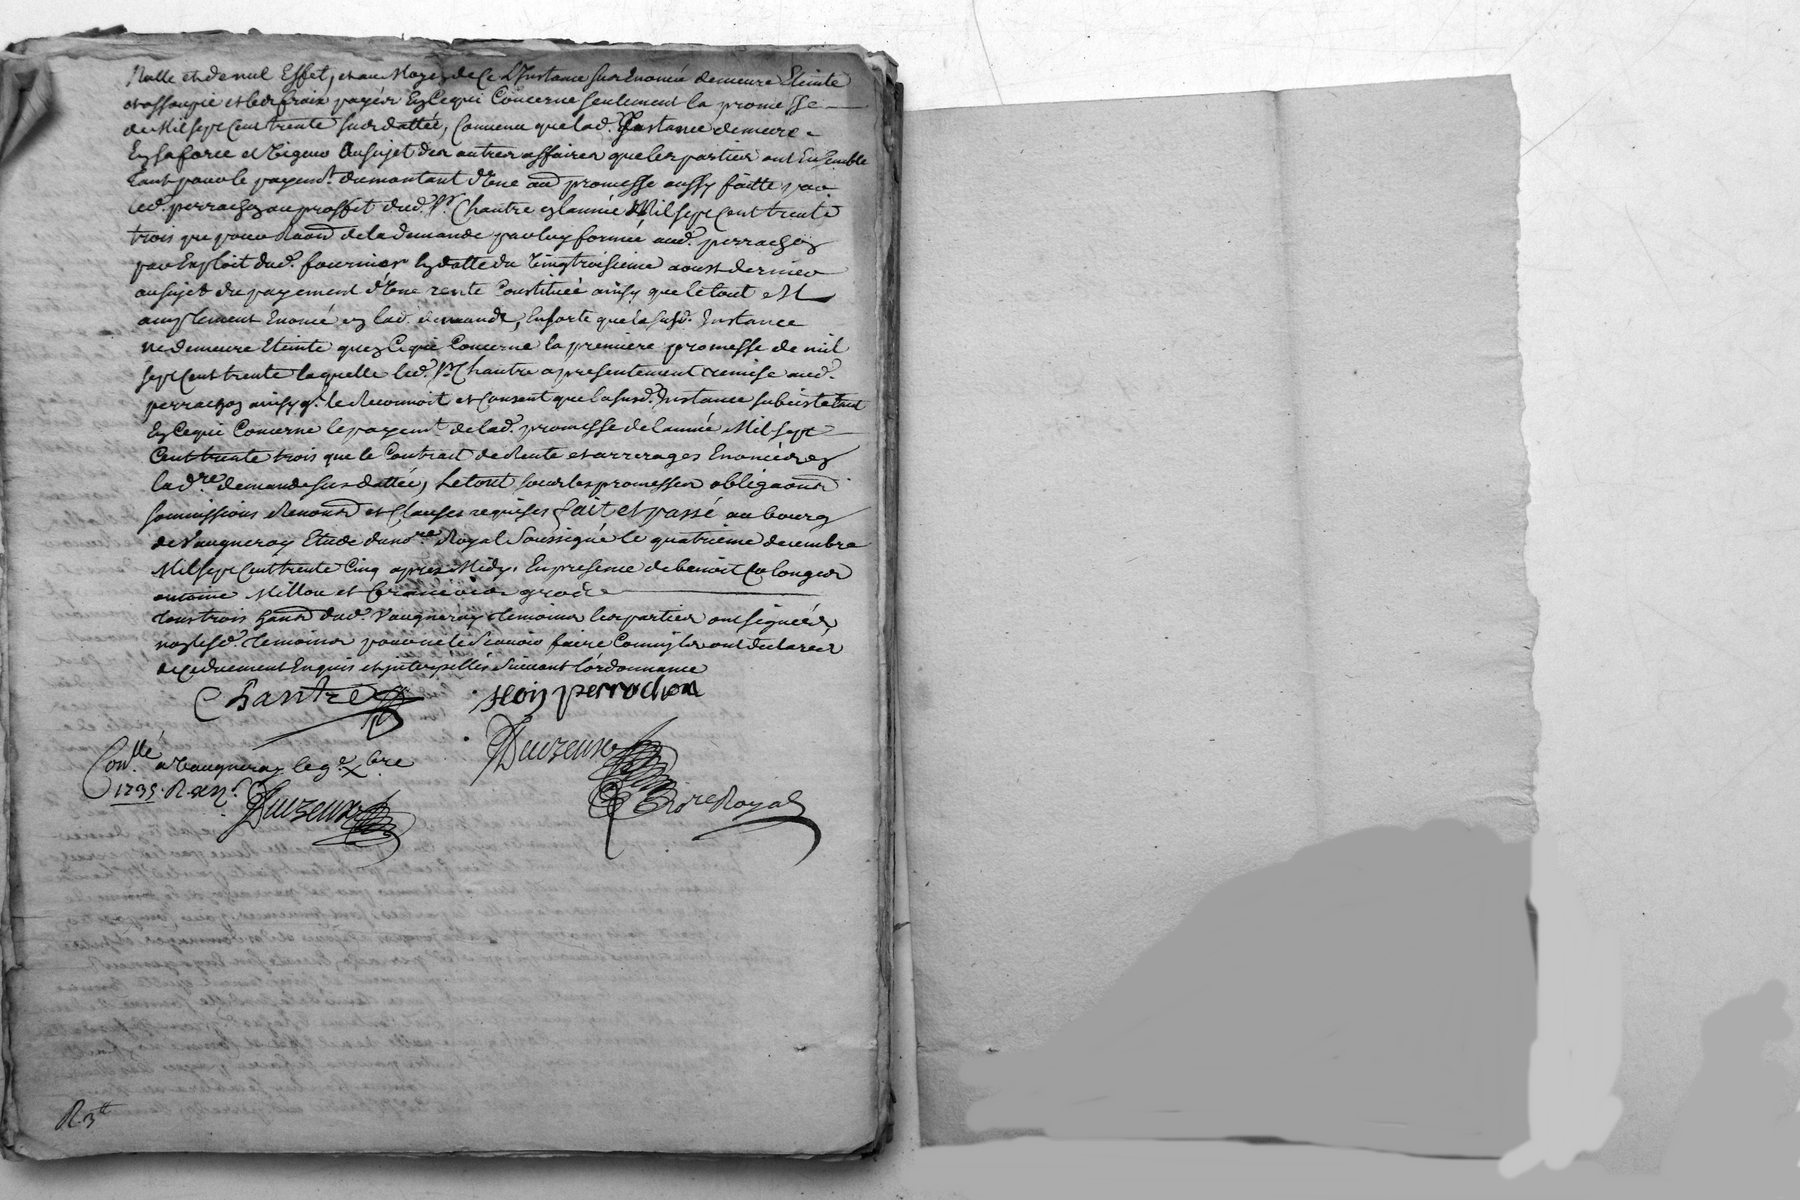 Nulle et de nul Effet, et au Moyen de Ce L'Instance sus Enoncée demeure Eteinte
et assoupie et les fraix payés En Ce qui Concerne seulement la promesse
de Mil sept Cent trente sus dattée, Convenu que lad. Instance demeure
En sa force et Vigeur Au sujet des autres affaires que les parties ont Ensemble
tant pour le payem.t du montant d'Une au promesse aussy faitte par
led. perrachon au proffit dud. Sr. Chantre en lannée Mil sept Cent trente
trois que pour Raon de la demande par luy formée aud. perrachon
par Exploit dud. fournier En datte du Vingtroisieme aoust dernier
au sujet du payement d'Une rente Constituée ainsy que le tout est
amplement Enoncé en lad. demande, Ensorte que la susd. Instance
ne demeure Eteinte qu'en Ce qui Concerne la premiere promesse de mil
sept Cent trente laquelle led. Sr. Chantre a presentement remise aud.
perrachon ainsy q.l le Reconnoit et Consent que la susd. Instance subciste tant
En Ce qui Concerne le payem.t de lad. promesse de lannée Mil sept
Cent trente trois que le Contract de Rente et arrerages Enoncées en
lad.re demande sus dattée, Le tout sous les promesses obligaons
soumissions Renons et Clauses requises fait et passé au bourg
de Vaugneray Etude du no.re Royal Soussigné le quatrieme decembre
Mil sept Cent trente Cinq apres Midy, En presence de benoit Colongeor
antoine Millon et
tous trois habns dud. Vaugneray temoins les parties ont signées,
non lesd. temoins pour ne le Scavoir faire Comm'ils ont declarés
de Ce duement Enquis et interpellés Suivant l'ordonnance
Chantre
perrachon
Con.llé a Vaugneray le 9e xbre
1735. R.
Royal
R. 3.tt